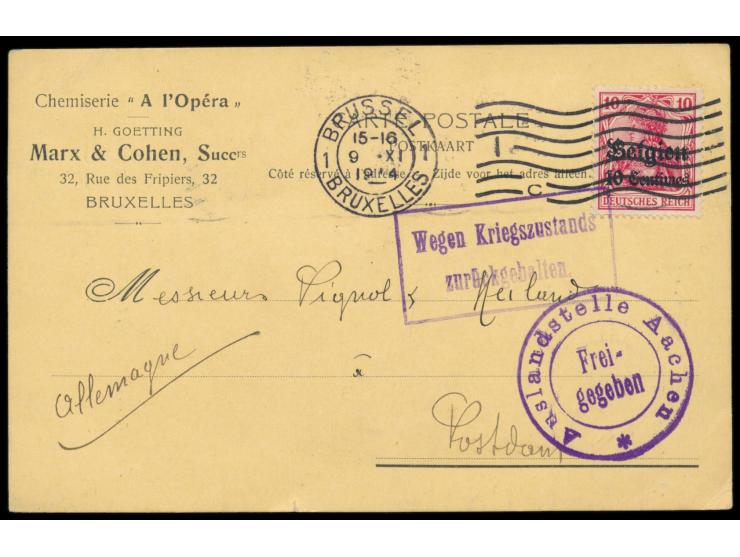 Chemiserie "A l'Opéra"
H. GOETTING
Marx & Cohen, Succrs
32, Rue des Fripiers, 32
BRUXELLES
CARTE POSTALE
POSTKAART
Côté réservé à l'adresse. Zijde voor het adres alleen.
BRUSSEL
15-16
1 9 XI 1
1914
BRUXELLES
C
10 10
Belgien
10 Centimes
DEUTSCHES REICH
Wegen Kriegszustands
zurückgehalten.
Messieurs Vignol & Heiland
à
Postdam
Allemagne
Auslandstelle Aachen
Frei-
gegeben